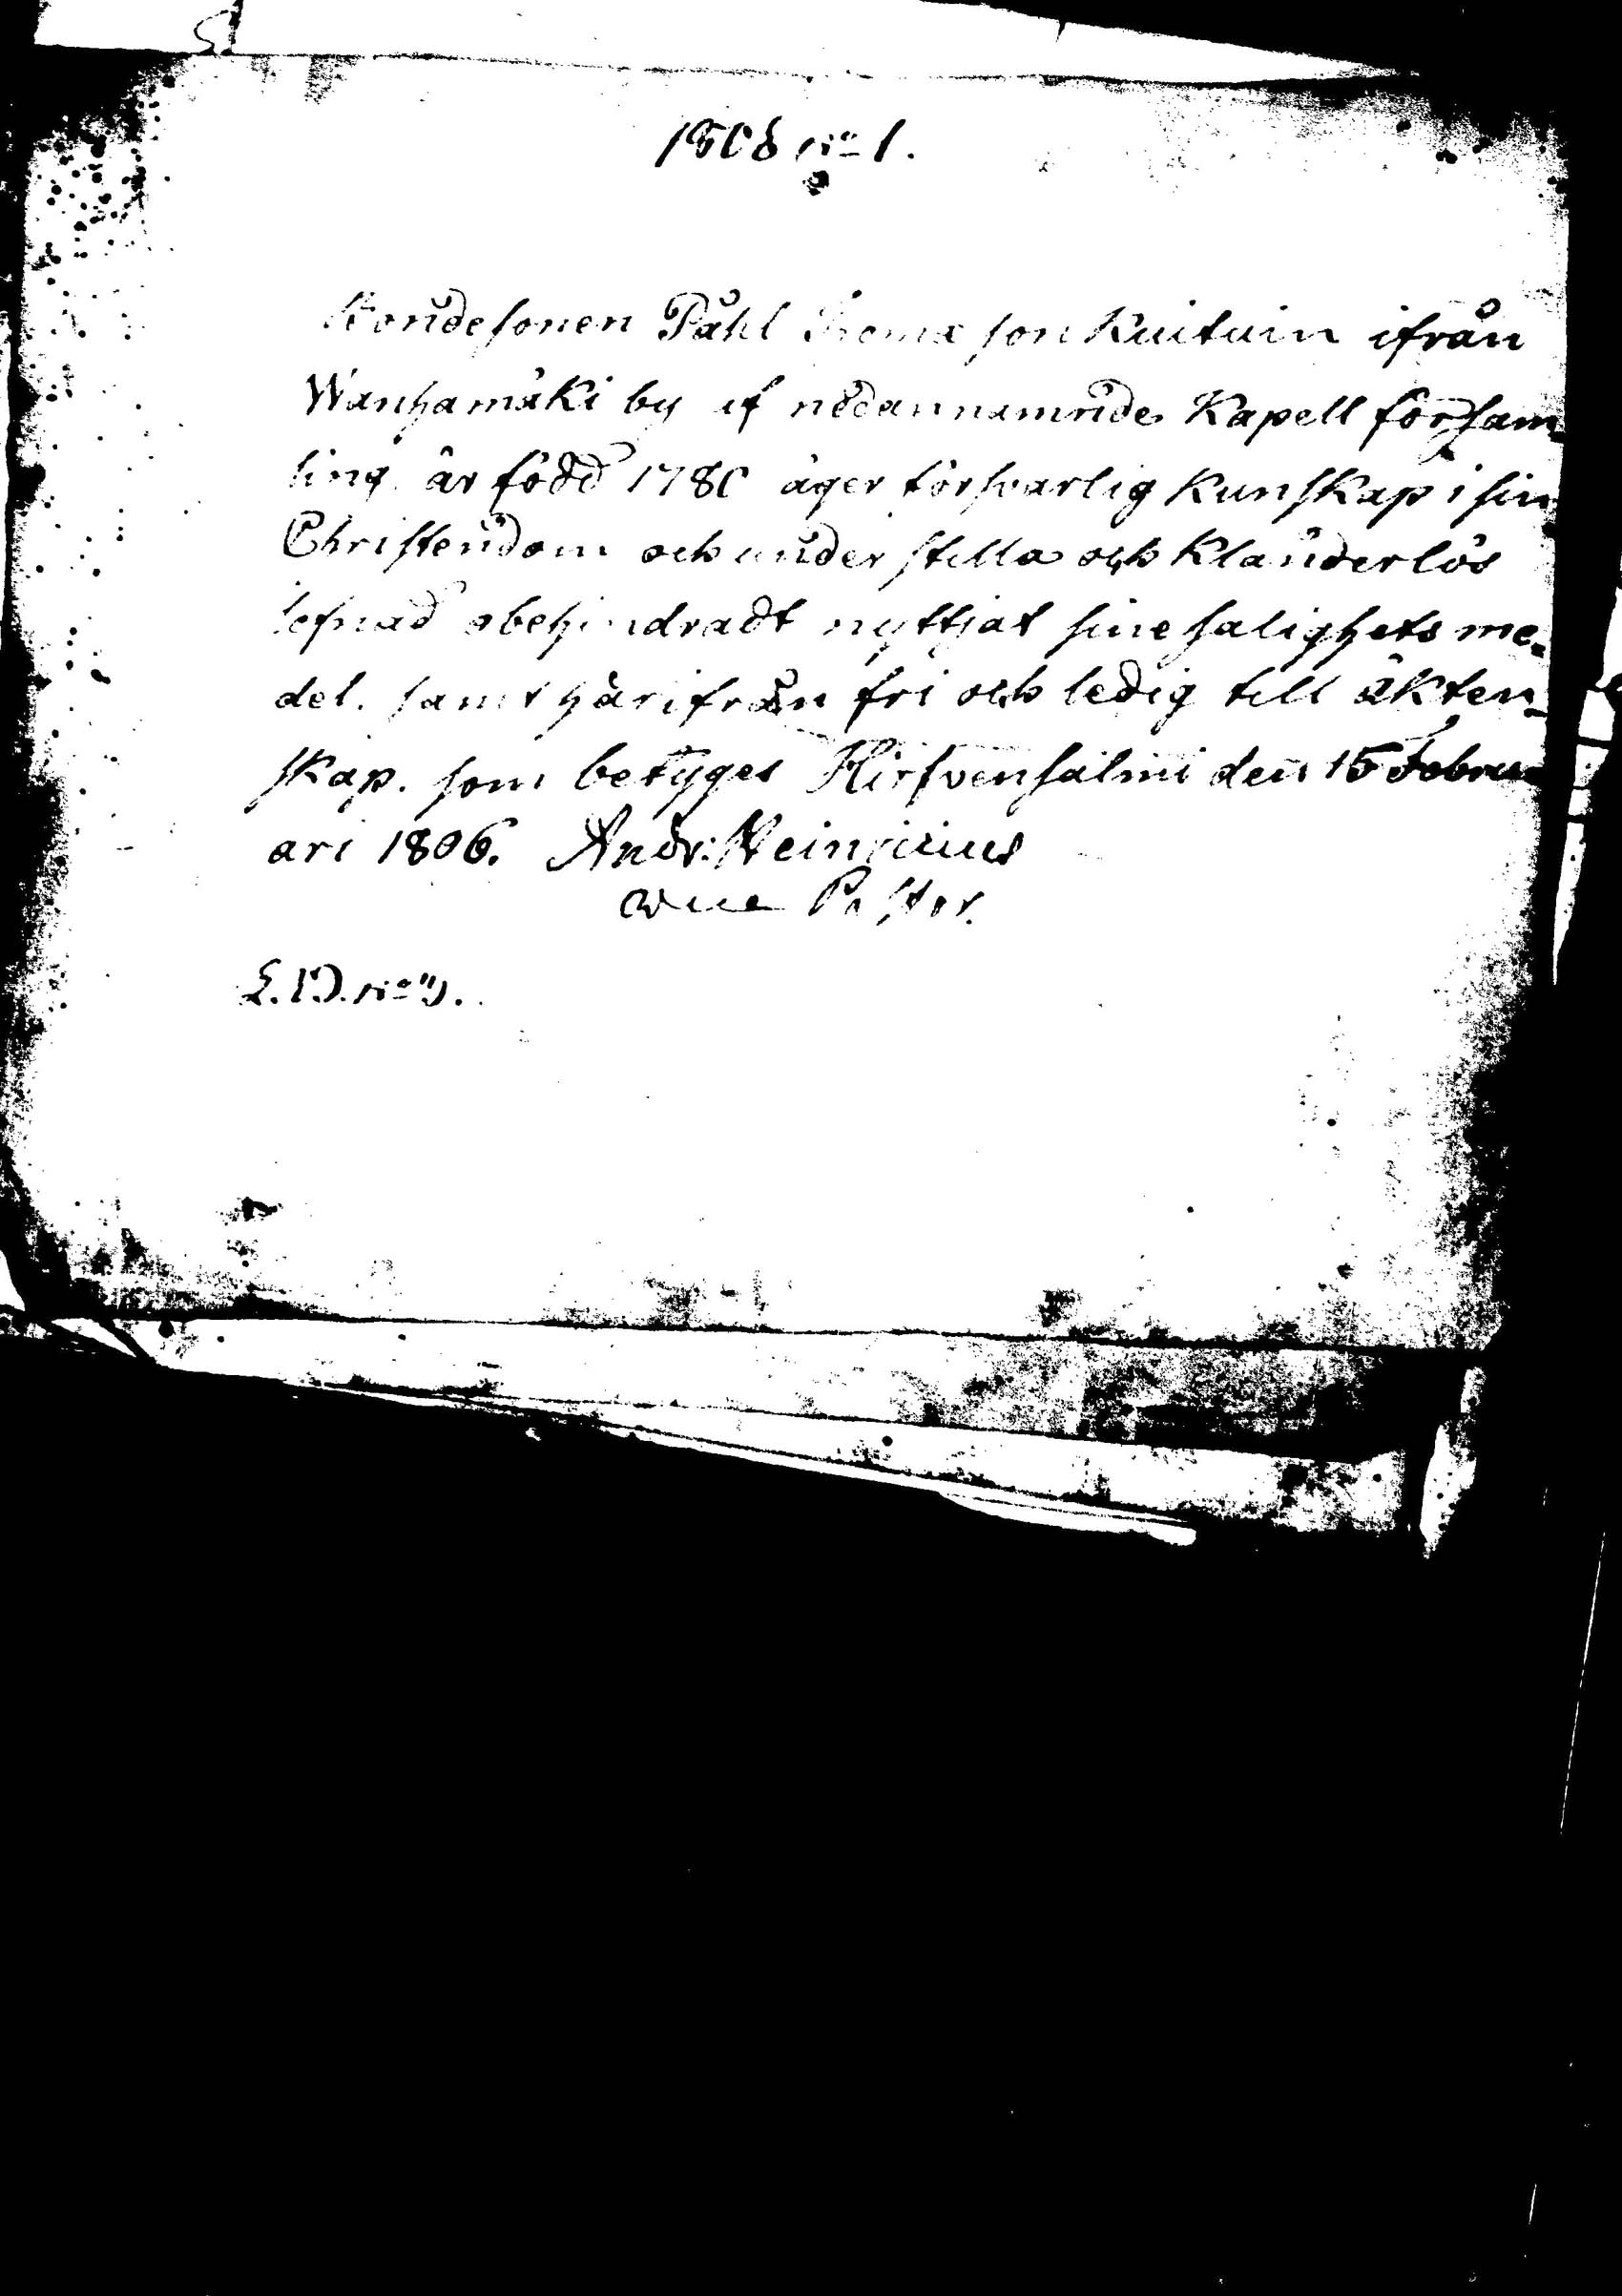 1808 No 1.
Bondesonen Påhl Thomæson Kuituin ifrån
Wanhamäki by af nedannämnde Kapell försam-
ling är född 1780 äger försvarlig kunskap i sin
Christendom och under stilla och klanderlös
lefnad obehindradt nyttjat sine salighets me-
del. samt härifrån fri och ledig till äkten-
skap. som betyges Hirfvensalmi den 15 Febru-
ari 1806. Andr: Heinricius
Pastor.